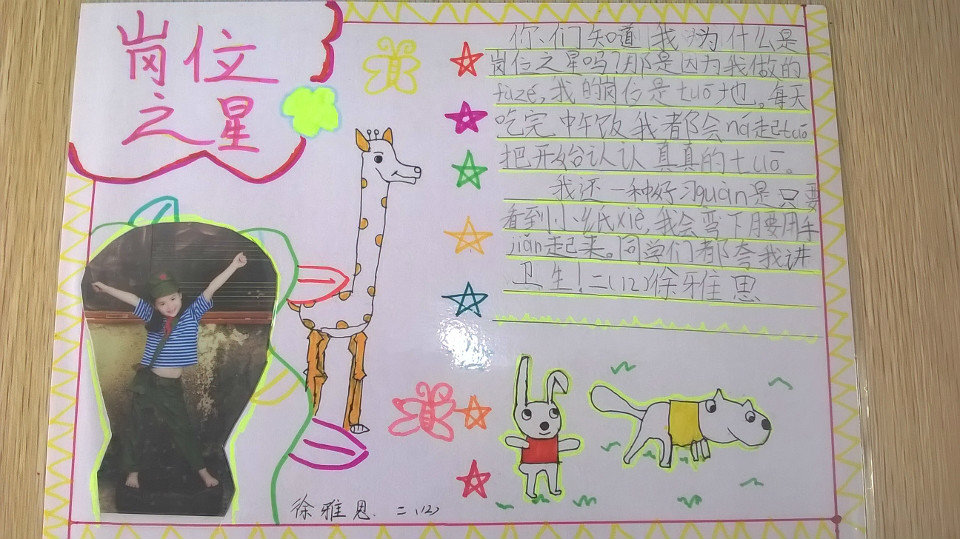 岗位
之星
你们知道我为什么是
岗位之星吗?那是因为我做的
fùzé,我的岗位是tuō地。每天
吃完中午饭我都会ná起tuō
把开始认认真真的tuō。
我还一种好习guàn是只要
看到小纸xiè,我会弯下月要用手
jiǎn起来。同学们都夸我讲
卫生!二(12)徐雅思
徐雅思 二(12)